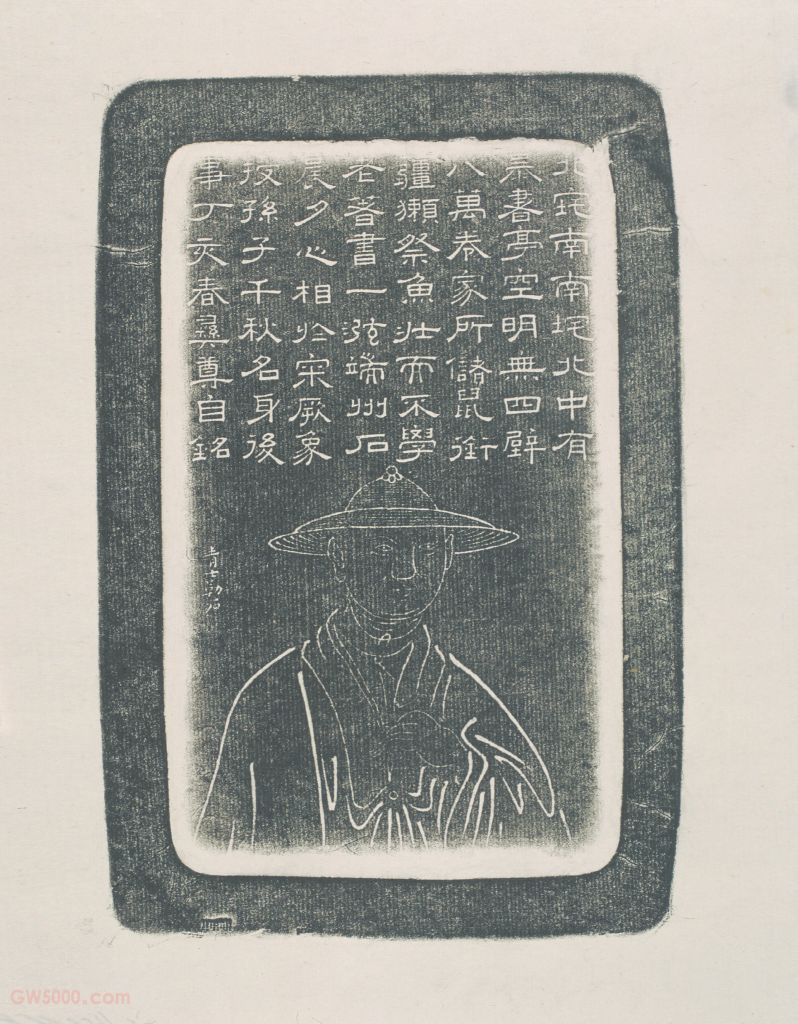 北垞南南垞北中有
暴書亭空明無四壁
八萬卷家所儲鼠銜
疆獺祭魚壯而不學
老著書一泓端州石
晨夕心相於宷厥象
授孫子千秋名身後
事丁亥春彝尊自銘
GW5000.com